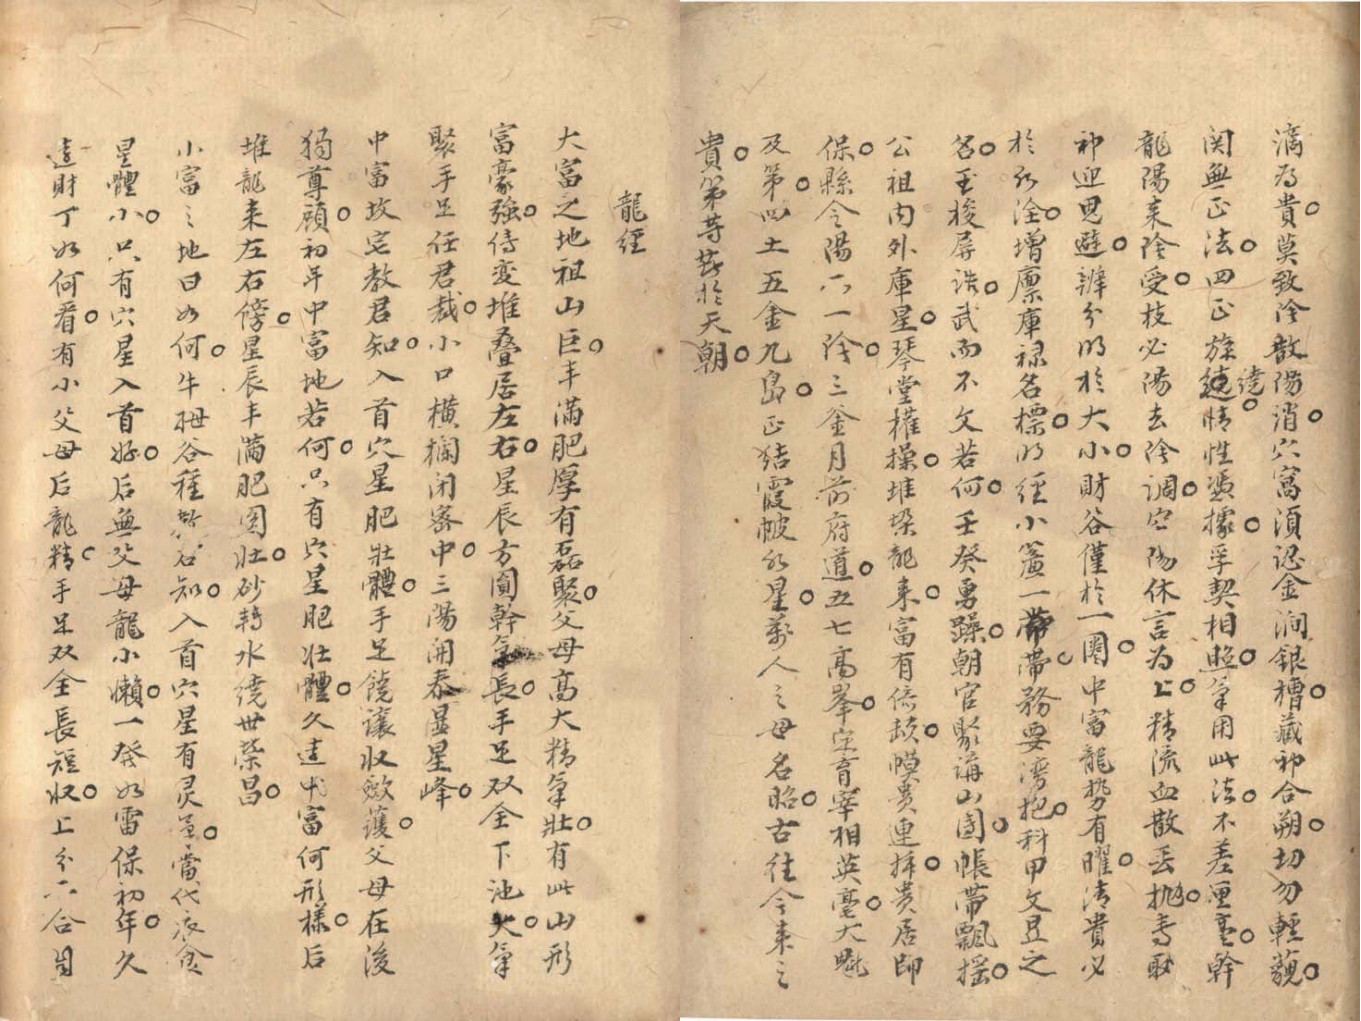 滴為貴莫致冷散陽消穴窩須認金澗銀槽藏神合朔切勿輕藐
関無正法四正旋繞情性憑據孚契相照氣用此法不差厘毫幹
繞
龍陽来陰受枝必陽去陰調空陽休言為上精流血散丟抛
神迎思避辨分明於大小財谷僅於一圈中富龍勢有曜清貴必
於增廩庫禄名標明經小簷一帶帶務要湾抱科甲文昱之
名至梭辱洪武而不文若何壬癸勇躁朝官聚講山圍帳帶飄摇
公祖内外庫星琴堂權操堆垛龍来富有倚幞貴連貴居師
保縣令陽六一陰三釜月前府道五七高峯定育宰相英毫大
及第四土五金九島正結霞帔星萬人之母名昭古往今来之
貴第等於天朝
龍經
大富之地祖山巨丰滿肥厚有磊聚父母高大精氣壯有此山形
富豪強傍変堆叠居左右星辰方圓幹氣長手足双全下池大氣
聚手足任君裁小口橫攔闭塞中三陽開泰显星峰
中富坟宅教君知入首穴星肥壯體手足饒讓收斂護父母在後
獨尊顧初年中富地若何只有穴星肥壯體久遠代富何形樣后
堆龍来左右傍星辰丰滿肥圆壯砂轉水繞世榮昌
小富之地曰如何牛谷種知入首穴星有灵當代衣食
星體小只有穴星入首好后無父母龍小懶一發如雷保初年久
遠財丁如何看有小父母后龍精手足双全長短收上分六合